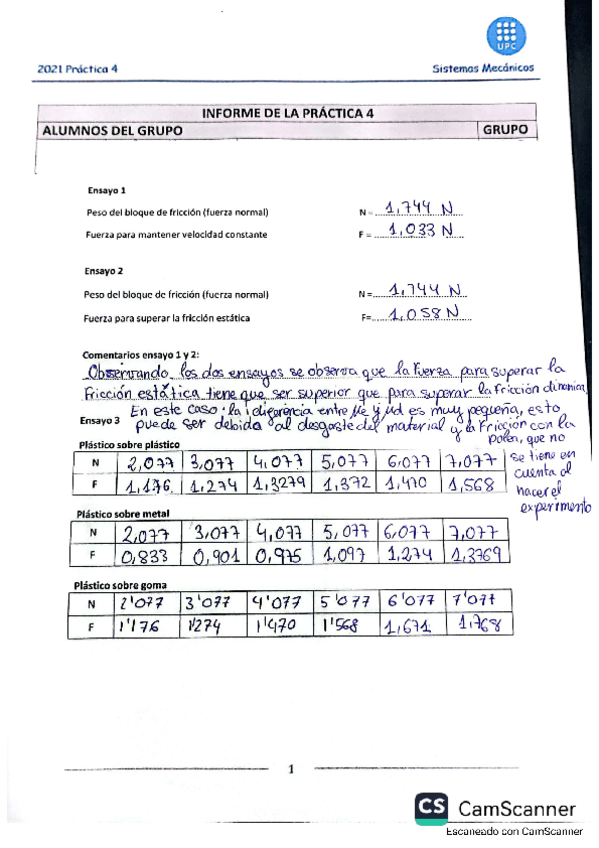 UPC
2021 Práctica 4 Sistemas Mecánicos
INFORME DE LA PRÁCTICA 4
ALUMNOS DEL GRUPO GRUPO
Ensayo 1
Peso del bloque de fricción (fuerza normal) N = 1,744 N
Fuerza para mantener velocidad constante F = 1,033 N
Ensayo 2
Peso del bloque de fricción (fuerza normal) N = 1,744 N
Fuerza para superar la fricción estática F= 1,058 N
Comentarios ensayo 1 y 2:
Observando los dos ensayos se observa que la fuerza para superar la
fricción estática tiene que ser superior que para superar la fricción dinámica
En este caso la diferencia entre μe y μd es muy pequeña, esto
Ensayo 3 puede ser debida al desgaste del material y la fricción con la
polea, que no
se tiene en
cuenta al
hacer el
experimento
Plástico sobre plástico
N 2,077 3,077 4,077 5,077 6,077 7,077
F 1,176 1,274 1,3279 1,372 1,470 1,568
Plástico sobre metal
N 2,077 3,077 4,077 5,077 6,077 7,077
F 0,833 0,901 0,975 1,097 1,274 1,3769
Plástico sobre goma
N 2'077 3'077 4'077 5'077 6'077 7'077
F 1'176 1'274 1'470 1'568 1,671 1,768
1
CS CamScanner
Escaneado con CamScanner